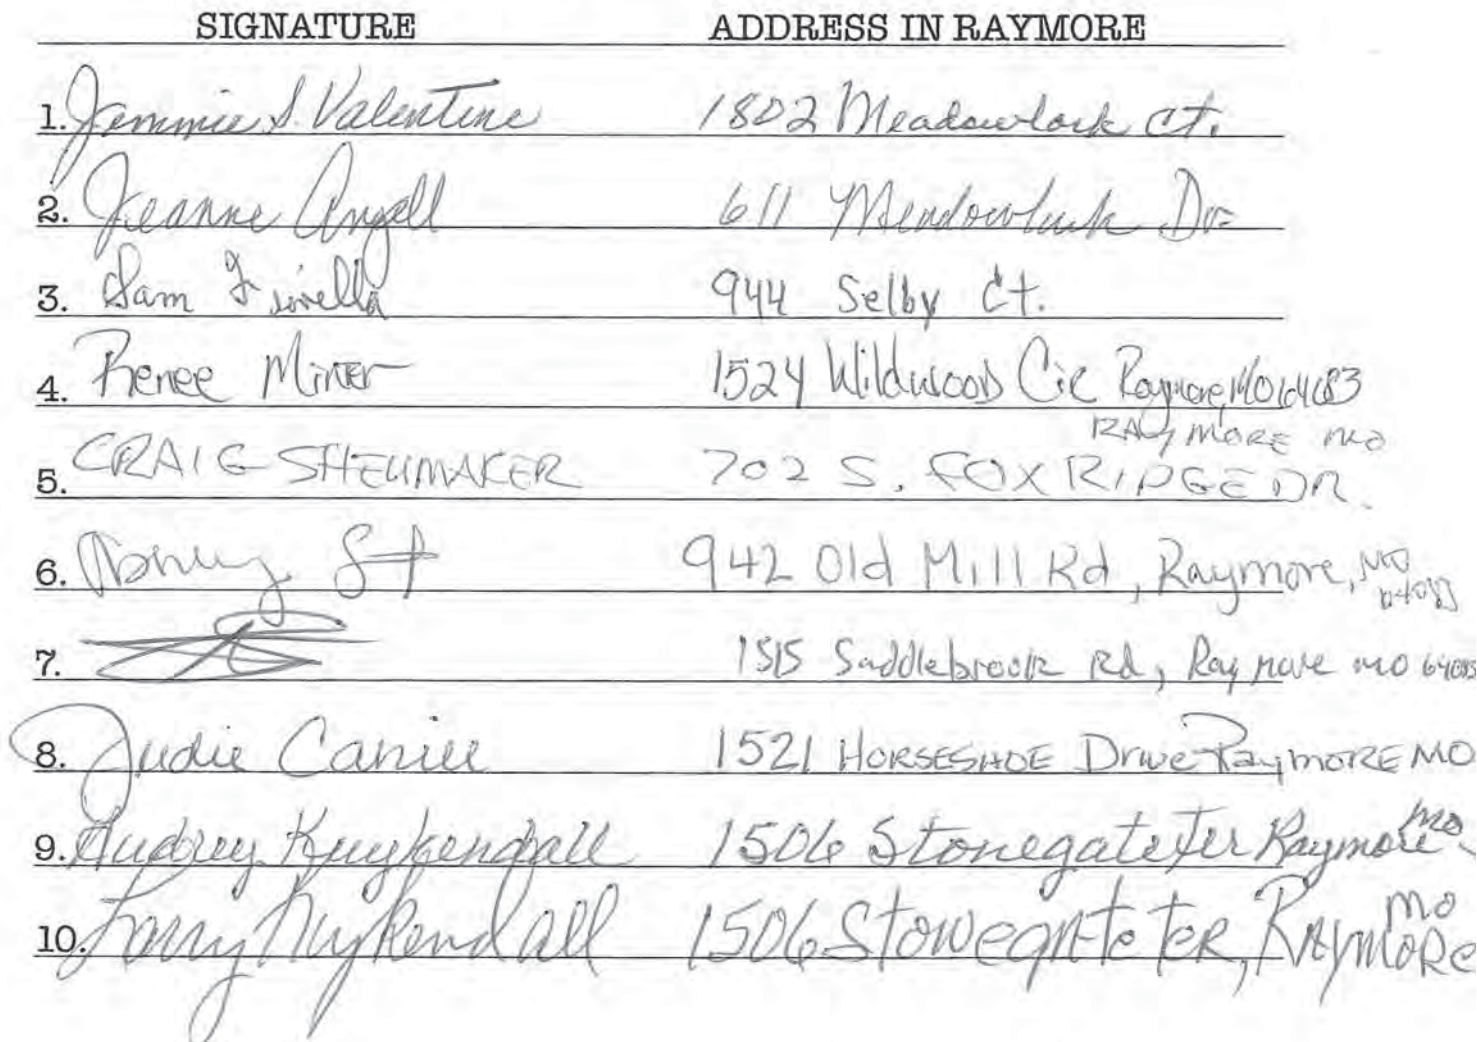 SIGNATURE ADDRESS IN RAYMORE
1. Jammie S. Valentine 1802 Meadowlark Ct.
2. Jeanne Angell 611 Meadowlark Dr
3. Sam 944 Selby Ct.
4. Renee Miner 1524 Wildwood Cir Raymore, MO 64083
RAYMORE MO
5. CRAIG SHEUMAKER 702 S. FOX RIDGE DR.
6. 942 Old Mill Rd, Raymore, MO 64083
7. 1515 Saddlebrook Rd, Raymore MO 64083
8. Judie 1521 HORSESHOE Drive Raymore MO
9. Audrey Kuykendall 1506 Stonegate Ter Raymore MO
10. Larry Kuykendall 1506 Stonegate Ter, Raymore MO